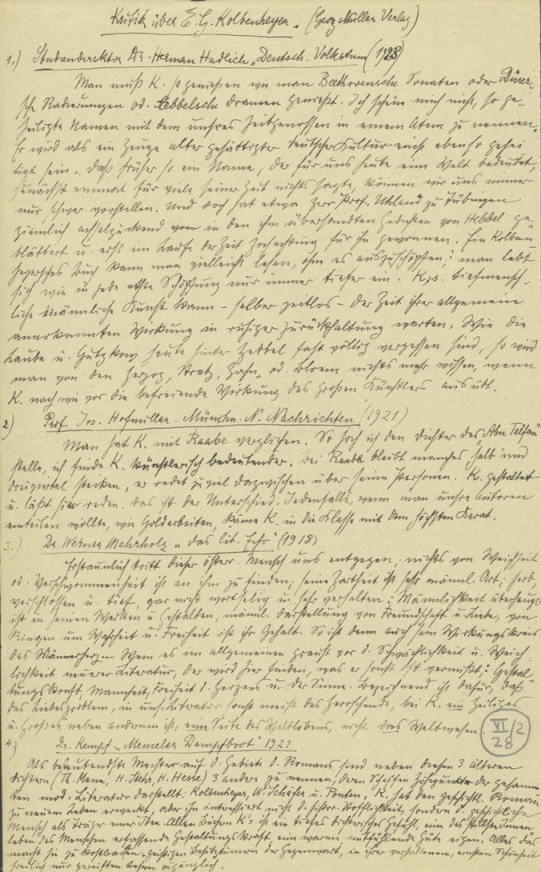 Kritik über E. G. Kolbenheyer. (Georg Müller Verlag)
1.) Studiendirektor Dr. Herman Hadlich „Deutsch. Volkstum“ (1923)
Man muß K. so genießen wie man Beethovensche Sonaten oder Dürer-
sche Radierungen od. Hebbelsche Dramen genießt. Ich scheue mich nicht, so ge-
heiligte Namen mit dem unsres Zeitgenossen in einem Atem zu nennen.
Er wird als ein Zeuge alter gesättigter deutscher Kultur einst ebenso gehei
ligt sein. Daß früher so ein Name, der für uns heute eine Welt bedeutet,
zunächst einmal für viele seiner Zeit nichts sagte, können wir uns immer
nur schwer vorstellen. Und doch hat etwa Herr Prof. Uhland zu Tübingen
ziemlich achselzuckend von in den ihm übersandten Gedichten von Hebbel ge-
blättert u. erst im Laufe der Zeit Hochachtung für ihn gewonnen. Ein Kolben-
heyersches Buch kann man vielleicht lesen, ohne es auszuschöpfen: man lebt
sich wie in jede echte Schöpfung nur immer tiefer ein. K.s. tiefmensch-
liche männliche Kunst kann – selber zeitlos – der Zeit ihrer allgemeine
anerkannten Wirkung in ruhiger Zurückhaltung warten. Wie die
Laube u. Gutzkow heute hinter Hebbel fast völlig vergessen sind, so wird
man von den Herzog, Stratz, Zahn, od. Bloem nichts mehr wissen, wenn
K. nach wie vor die befreiende Wirkung des großen Künstlers ausübt.
2) Prof. Jos. Hofmiller. Münchn. N. Nachrichten (1921)
Man hat K. mit Raabe verglichen. So hoch ich den Dichter des „Abu Telfan“
stelle, ich finde K. künstlerisch bedeutender. Bei Raabe bleibt manches halb und
dreiviertel stecken, er redet zuviel dazwischen über seine Personen. K. gestaltet
u. läßt sie reden. Das ist der Unterschied. Jedenfalls, wenn man unsre Autoren
einteilen wollte, wie Goldarbeiten, käme K. in die Klasse mit dem höchsten Karat.
3.) Dr. Werner Mahrholz „das lit. Echo“ (1918)
Erstaunlich tritt dieser österr. Mensch uns entgegen; nichts von Weichheit
od. Verschwommenheit ist an ihm zu finden; seine Zartheit ist sehr männl. Art; herb,
verschlossen u. tief, gar nicht wortselig u. sehr verhalten: Männlichkeit überhaupt
ist in seinen Werken u. Gestalten, männl. Darstellung von Freundschaft u. Liebe, von
Ringen um Wahrheit u. Freiheit ist ihr Gehalt. So ist denn auch sein Wirkungskreis
das Männerherz. Wem es im allgemeinen graust vor d. Schwächlichkeit u. Weich
lichkeit neuerer Literatur, der wird hier finden, was er sonst oft vermißt: Gestal-
tungskraft, Mannheit, Freiheit d. Herzens u. der Sinne. Bezeichnend ist dafür, daß
das Liebesproblem, in uns. Literatur sonst meist das Herrschende, bei K. ein Heiliges
u. Großes neben anderem ist, eine Seite des Weltlebens, nicht das Weltwesen.
VI/2
28
4.) Dr. Kempf „Memeler Dampfboot“ 1921
Als bedeutendste Meister auf d. Gebiete d. Romans sind neben diesen 3 älteren
Dichtern (Th. Mann, H. Stehr, H. Hesse) 3 andere zu nennen, deren Schaffen Höhepunkte der gesamm
ten mod. Literatur darstellt: Kolbenheyer, W. Schäfer u. Ponten. K. hat den geschichtl. Roman
zu neuem Leben erweckt, aber ihn interessiert nicht d. histor. Stofflichkeit, sondern d. geschichtliche
Mensch als Träger einer Idee. Allen Büchern K's ist ein tiefes dichterisches Gefühl, eine das seelische Innen
leben des Menschen erfassende Gestaltungskraft, eine warme, mitfühlende Güte eigen. Alles das
macht sie zu kostbaren, geistigen Besitztümern der Gegenwart, in ihrer verhaltenen, ernsten Schönheit
freilich nur gereiften Lesern zugänglich.